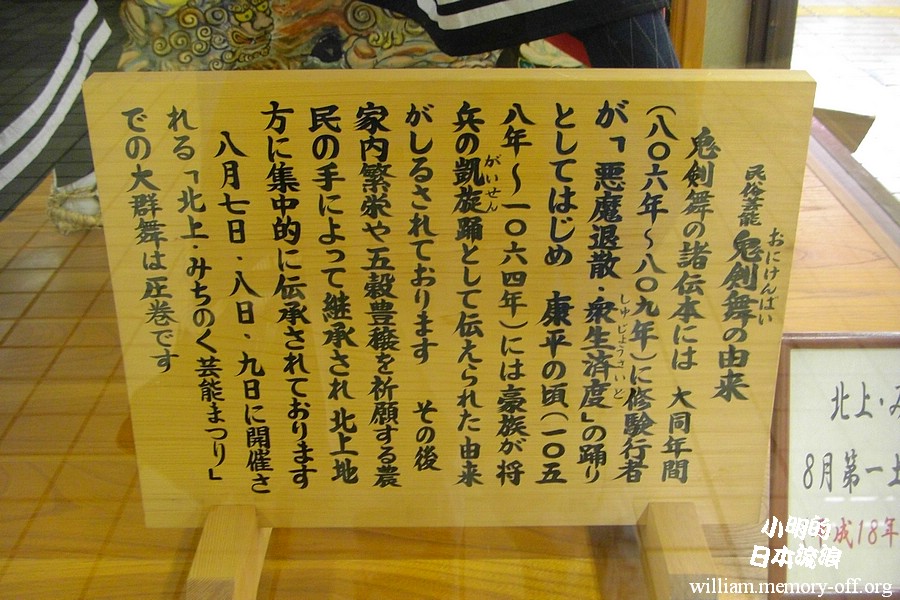 民俗芸能 鬼剣舞の由来
おにけんばい
鬼剣舞の諸伝本には 大同年間
(八〇六年〜八〇九年)に修験行者
が「悪魔退散・衆生済度」の踊り
しゅじょうさいど
としてはじめ 康平の頃(一〇五
八年〜一〇六四年)には豪族が将
兵の凱旋踊として伝えられた由来
がいせん
がしるされております その後
家内繁栄や五穀豊穣を祈願する農
民の手によって継承され 北上地
方に集中的に伝承されております
八月七日・八日・九日に開催さ
れる「北上・みちのく芸能まつり」
での大群舞は圧巻です
北上・み
8月第一土
平成18年
小明的
日本流浪
william.memory-off.org